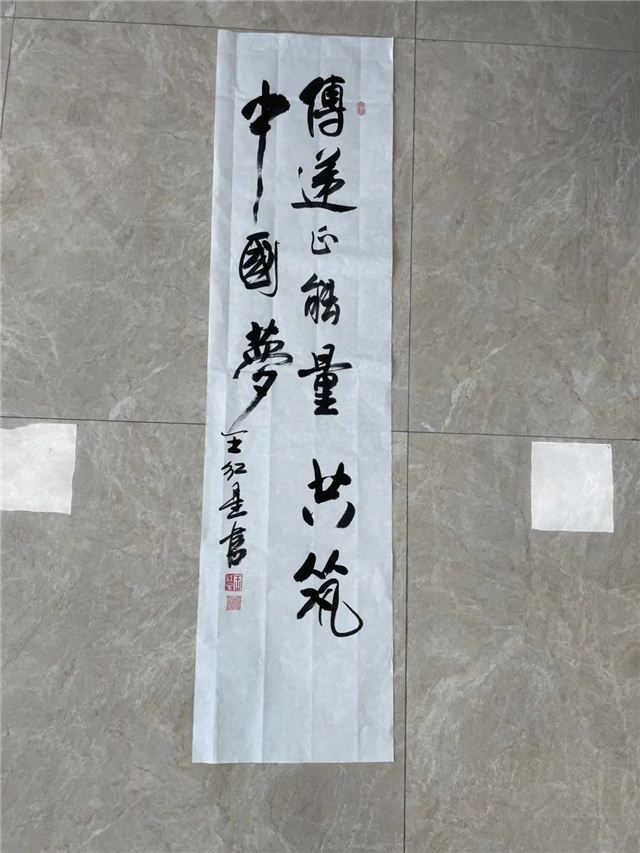 傳递正能量 共筑
中國夢
王红星書